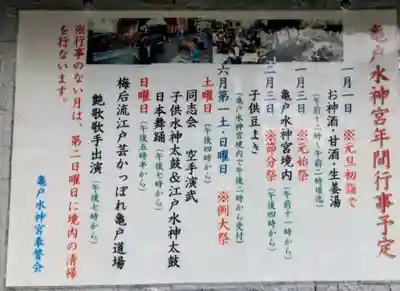 亀戸水神宮年間行事予定
一月一日 ※元旦・初詣で
お神酒・甘酒・生姜湯
(午前十二時〜午前二時頃迄)
一月三日 ※元始祭
亀戸水神宮境内 (午前十一時から)
二月三日 ※節分祭
子供豆まき (午後四時から)
(亀戸水神宮境内で午後二時から受付)
六月第一土・日曜日 ※例大祭
土曜日 (午後四時から)
同志会 空手演武
子供水神太鼓&江戸水神太鼓
日本舞踊 (午後七時から)
日曜日 (午後五時半から)
梅后流江戸芸かっぽれ亀戸道場
艶歌歌手出演 (午後七時から)
※行事のない月は、第二日曜日に境内の清掃
を行ないます。
亀戸水神宮奉賛会